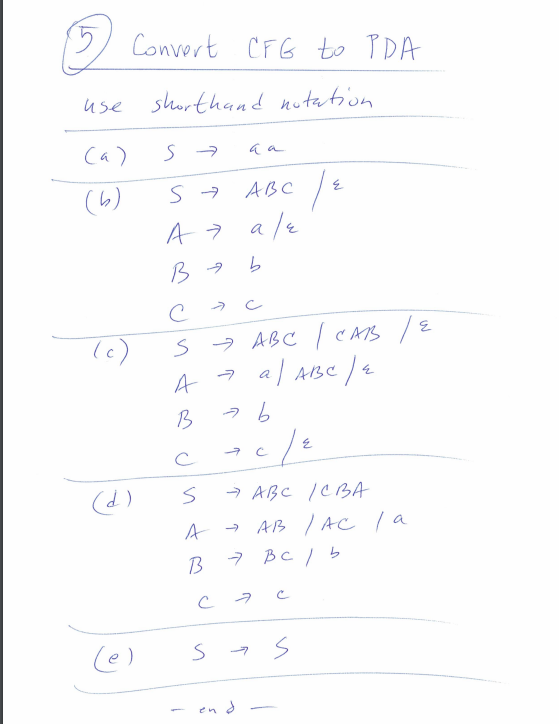 5 Convert CFG to PDA
use shorthand notation
(a) S → aa
(b) S → ABC / ε
A → a / ε
B → b
C → c
(c) S → ABC / CAB / ε
A → a / ABC / ε
B → b
C → c / ε
(d) S → ABC / CBA
A → AB / AC / a
B → BC / b
C → c
(e) S → S
- end -